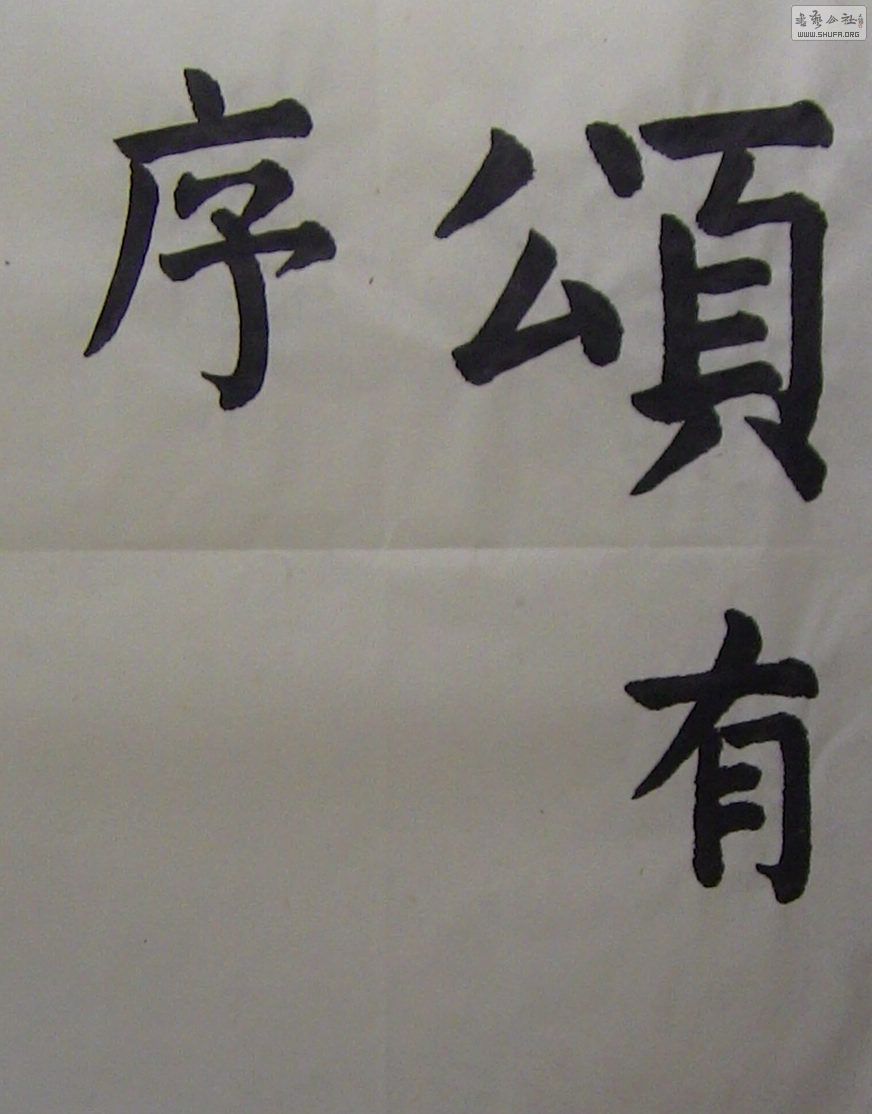 頌有
序
書藝公社
WWW.SHUFA.ORG